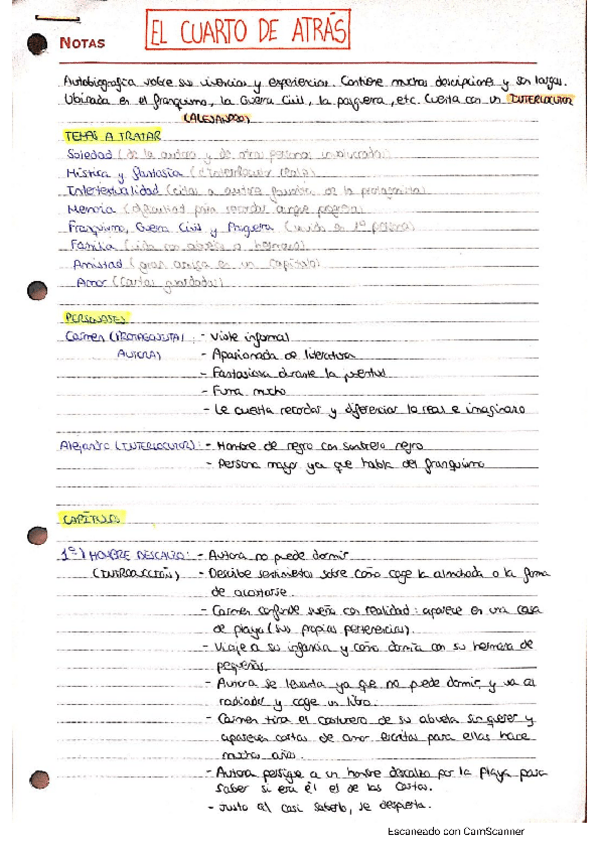 EL CUARTO DE ATRÁS
NOTAS
Autobiografica sobre su vivencias y experiencias. Contiene muchas descripciones y son largas.
Ubicada en el franquismo, la Guerra Civil, la posguerra, etc. Cuenta con un INTERLOCUTOR
(ALEJANDRO)
TEMAS A TRATAR
Soledad (de la autora y de otras personas involucradas)
Mistica y fantasia (
Intertextualidad (citas a autores favoritos de la protagonista)
Memoria (dificultad para recordar
Franquismo, Guerra Civil y Posguerra (vivido en 1ª persona)
Familia (vida con abuelos o hermana)
Amistad (gran amiga en un capítulo)
Amor (Cartas guardadas)
PERSONAJES
Carmen (PROTAGONISTA/ : - Viste informal
AUTORA) - Apasionada de literatura
- Fantasiosa durante la juventud
- Fuma mucho
- Le cuesta recordar y diferenciar lo real e imaginario
Alejandro (INTERLOCUTOR): - Hombre de negro con sombrero negro
- Persona mayor ya que habla del franquismo
CAPÍTULOS
1º) HOMBRE DESCALZO: - Autora no puede dormir
(INTRODUCCIÓN) - Describe sentimientos sobre cómo coge la almohada o la forma
de acostarse.
- Carmen confunde sueño con realidad: aparece en una casa
de playa (sus propias pertenencias).
- Viaje a su infancia y cómo dormía con su hermana de
pequeñas.
- Autora se levanta ya que no puede dormir, y va al
radiador y coge un libro.
- Carmen tira el costurero de su abuela sin querer y
aparecen cartas de amor escritas para ellas hace
muchos años.
- Autora persigue a un hombre descalzo por la playa para
saber si era él el de las cartas.
- Justo al casi saberlo, se despierta.
Escaneado con CamScanner